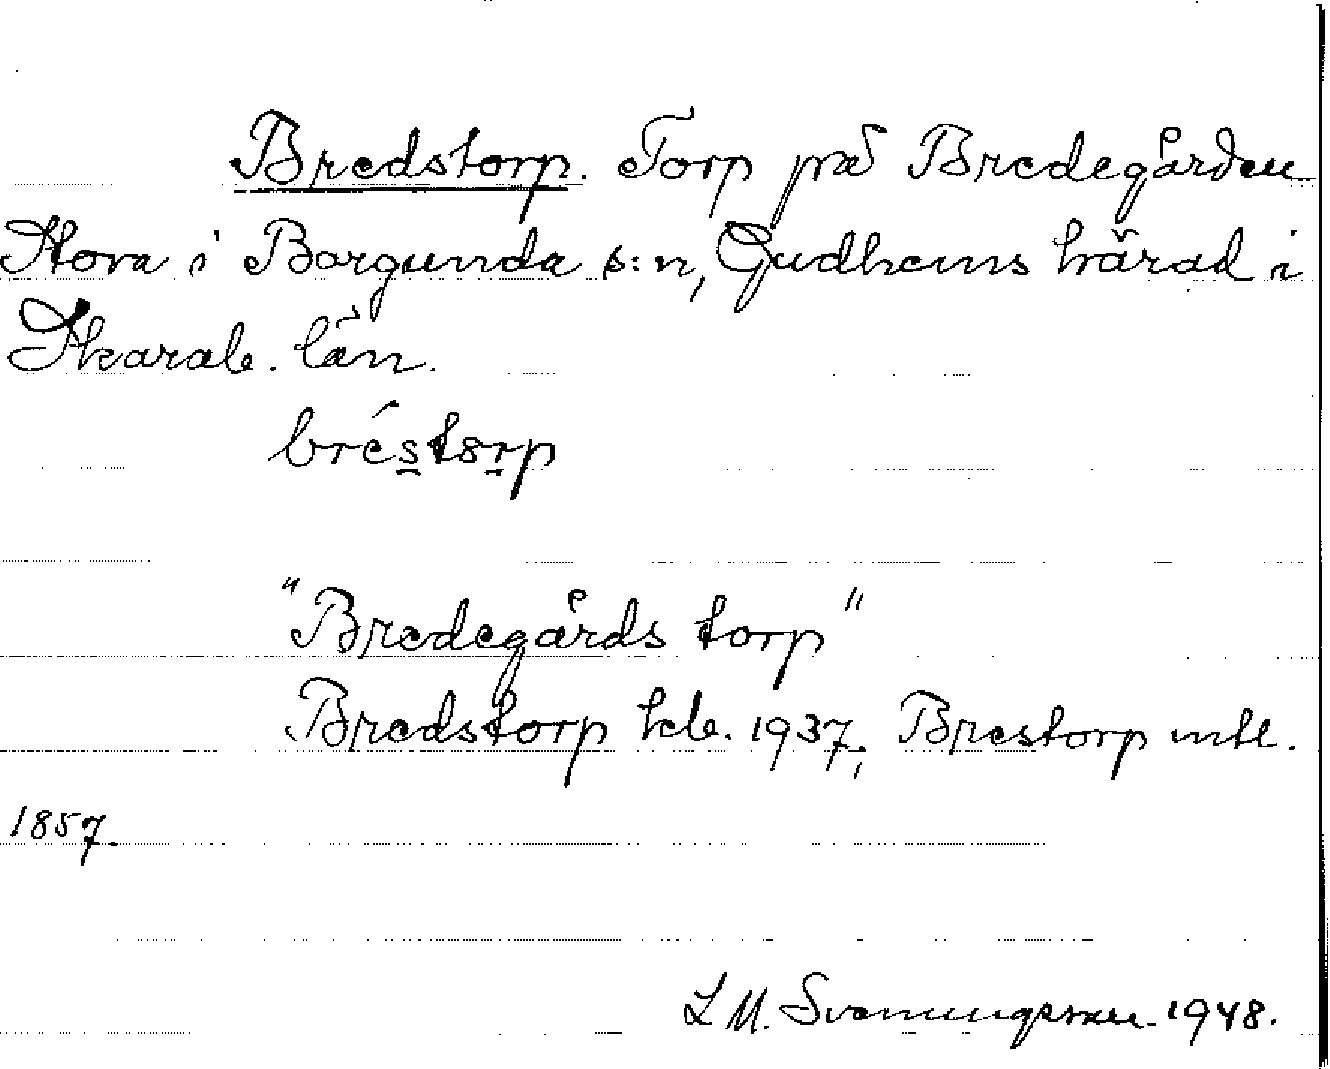 Bredstorp. Torp på Bredegården
Stora i Borgunda s:n, Gudhems härad i
Skarab. län.
bréstorp
"Bredegårds torp"
Bredstorp kb. 1937, Brestorp mtl.
1857.
L M. Svenungsson 1948.